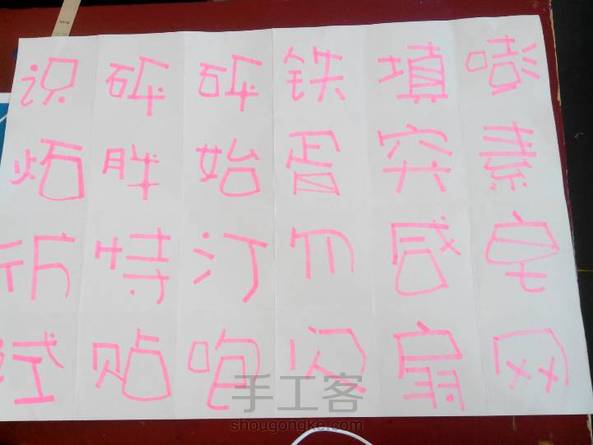 识砰砰铁填嘭
炻胜始眉突素
祈特汀爪感宅
试贴咆闪扇网
手工客
shougongke.com